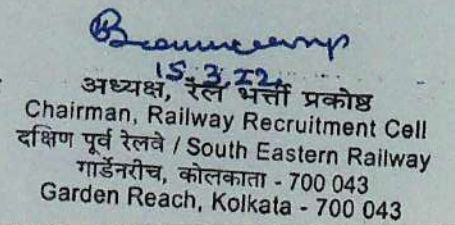 15.3.22
अध्यक्ष, रेल भर्ती प्रकोष्ठ
Chairman, Railway Recruitment Cell
दक्षिण पूर्व रेलवे / South Eastern Railway
गार्डेनरीच, कोलकाता - 700 043
Garden Reach, Kolkata - 700 043